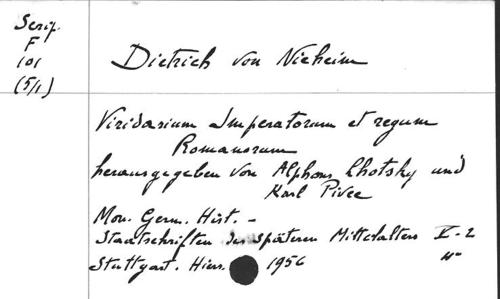 Scrip.
F
101
(5/1)
Dietrich von Nieheim
Viridarium Imperatorum et regum
Romanorum
herausgegeben von Alphons Lhotsky und
Karl Pivec
Mon. Germ. Hist. -
Staatschriften des späteren Mittelalters V-2
Stuttgart. Hiers. 1956